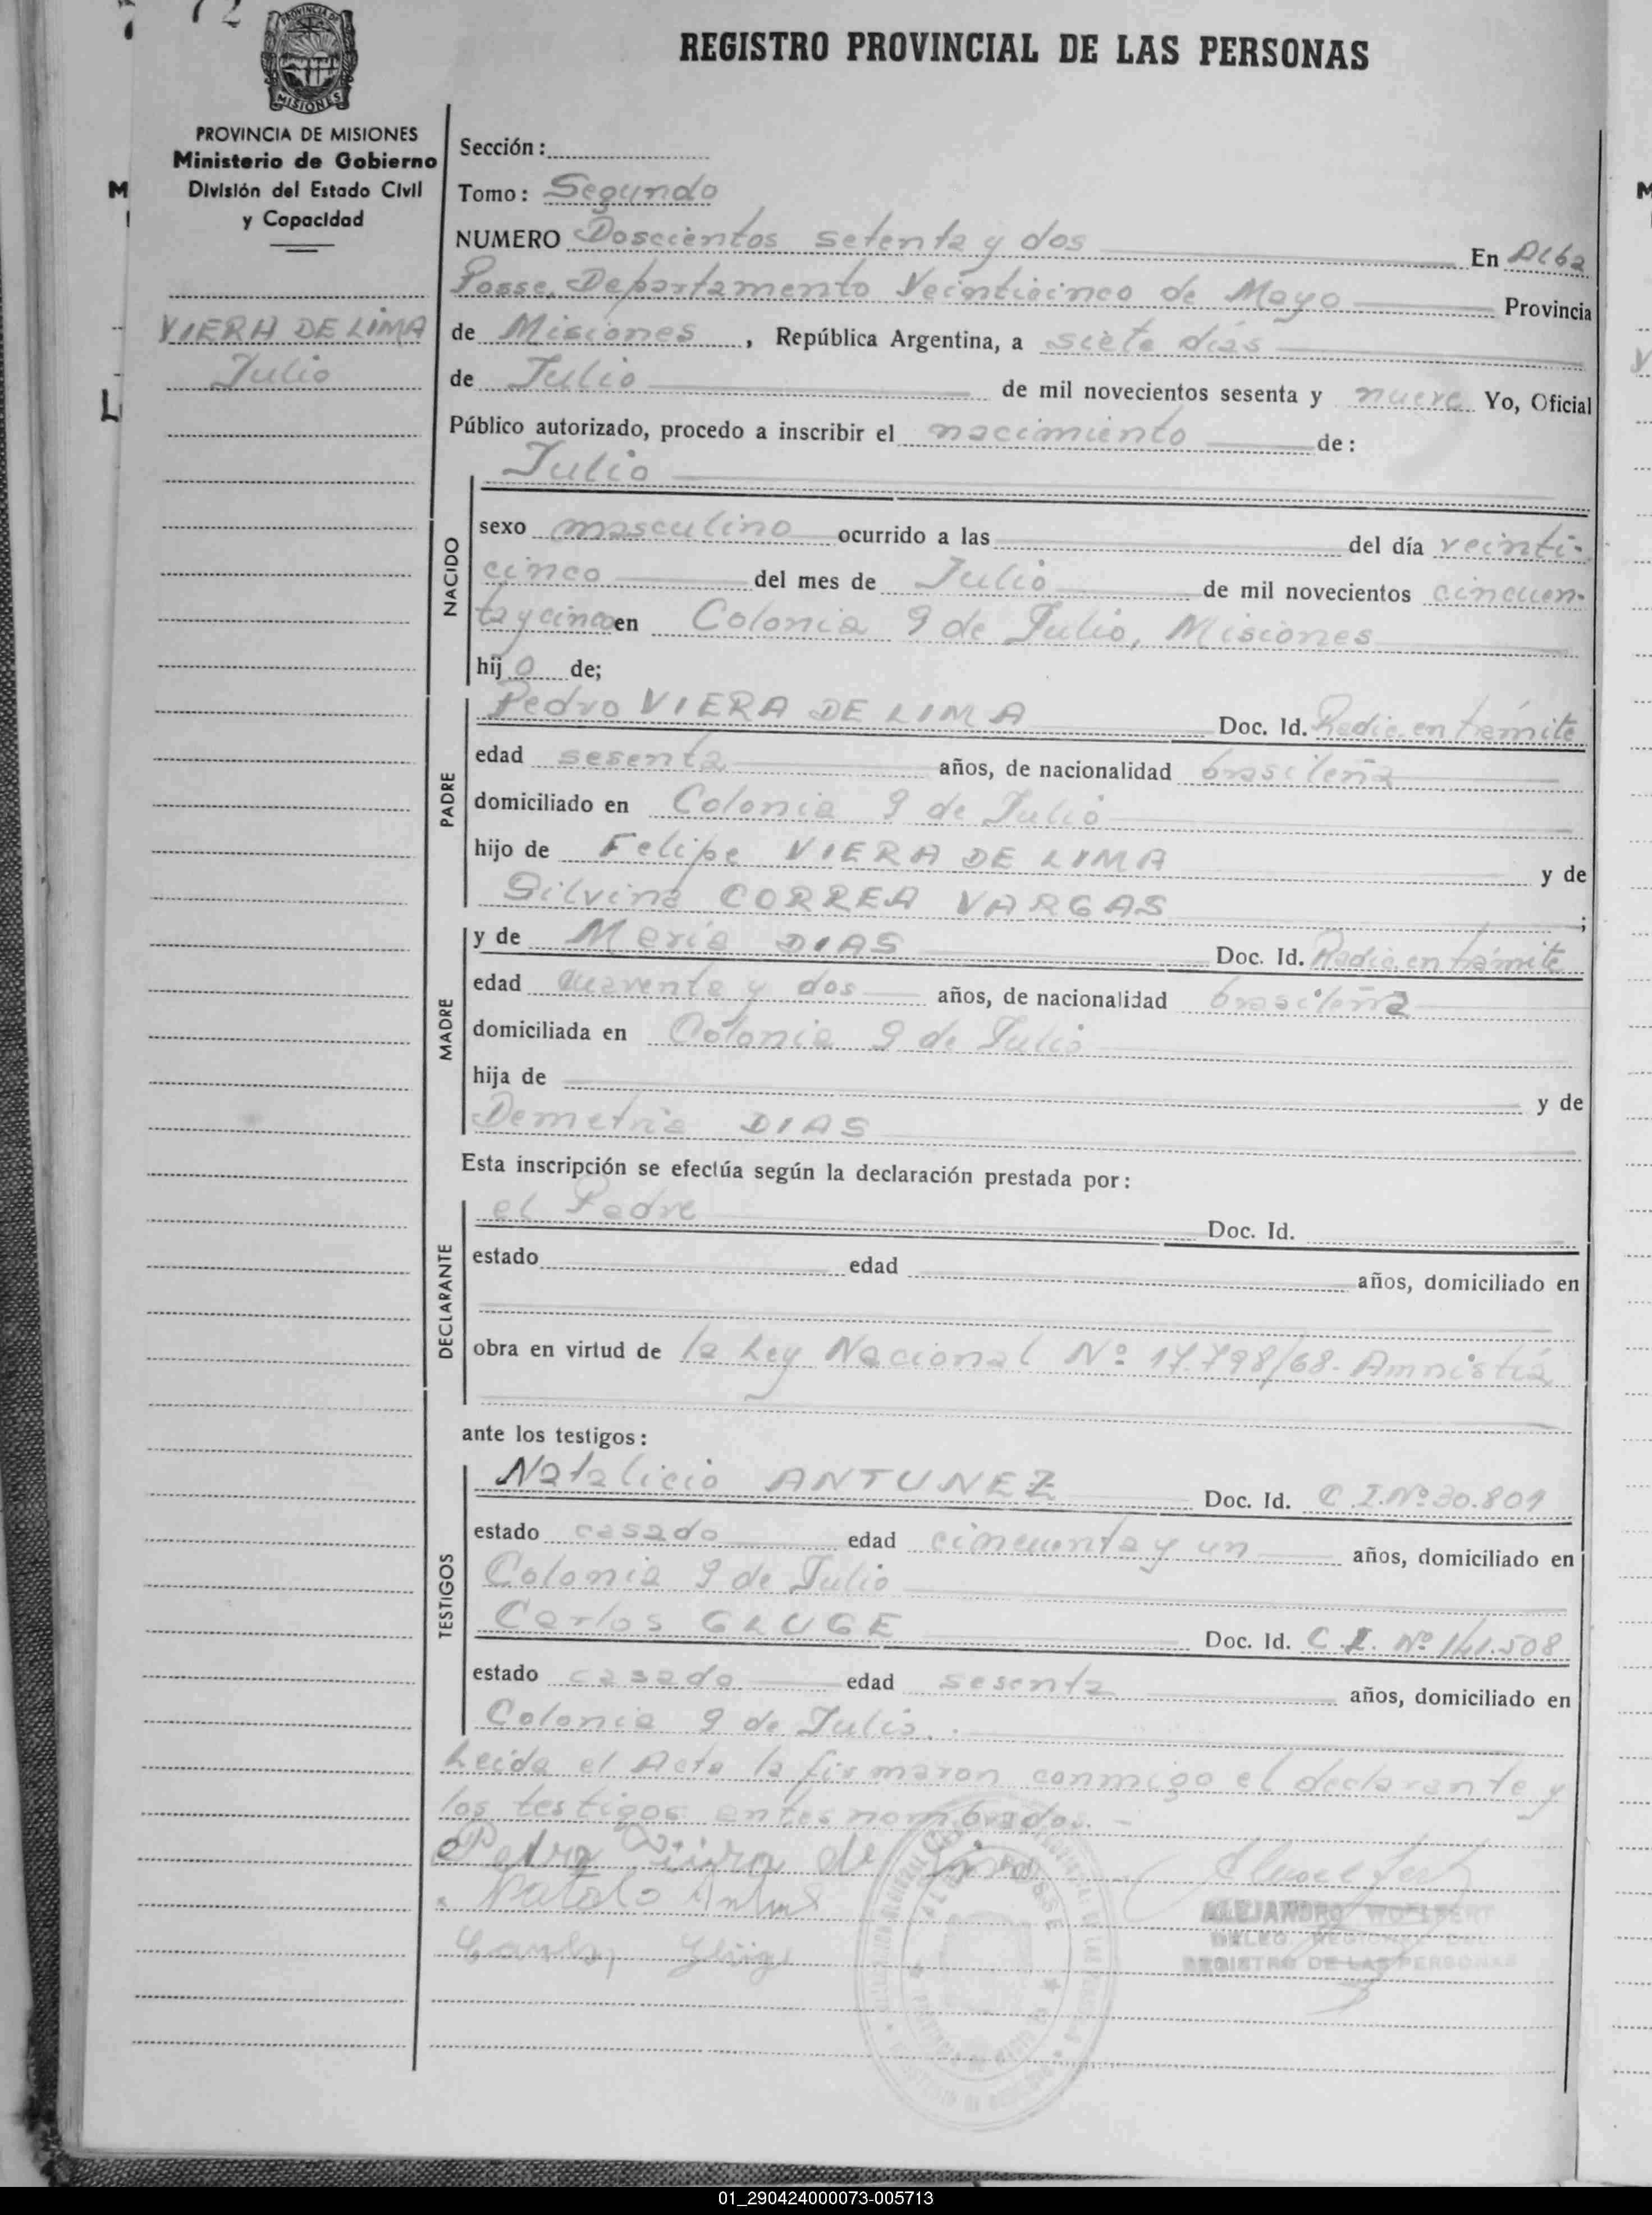 72
PROVINCIA DE
MISIONES
REGISTRO PROVINCIAL DE LAS PERSONAS
PROVINCIA DE MISIONES
Ministerio de Gobierno
División del Estado Civil
y Capacidad
VIERA DE LIMA
Julio
Sección:
Tomo: Segundo
NUMERO Doscientos setenta y dos En Alba
Posse, Departamento Veinticinco de Mayo Provincia
de Misiones, República Argentina, a siete días
de Julio de mil novecientos sesenta y nueve Yo, Oficial
Público autorizado, procedo a inscribir el nacimiento de:
Julio
NACIDO
sexo masculino ocurrido a las del día veinti-
cinco del mes de Julio de mil novecientos cincuen-
ta y cinco en Colonia 9 de Julio, Misiones
hijo de;
PADRE
Pedro VIERA DE LIMA Doc. Id. Radic. en trámite
edad sesenta años, de nacionalidad brasileña
domiciliado en Colonia 9 de Julio
hijo de Felipe VIERA DE LIMA y de
Silvina CORREA VARGAS;
MADRE
y de María DIAS Doc. Id. Radic. en trámite
edad cuarenta y dos años, de nacionalidad brasileña
domiciliada en Colonia 9 de Julio
hija de y de
Demetria DIAS
Esta inscripción se efectúa según la declaración prestada por:
DECLARANTE
el Padre Doc. Id.
estado edad años, domiciliado en
obra en virtud de la Ley Nacional Nº 17.798/68- Amnistía
ante los testigos:
TESTIGOS
Natalicio ANTUNEZ Doc. Id. C.I. Nº 30.801
estado casado edad cincuenta y un años, domiciliado en
Colonia 9 de Julio
Carlos GLUGE Doc. Id. C.I. Nº 141.508
estado casado edad sesenta años, domiciliado en
Colonia 9 de Julio.
Leída el Acta la firmaron conmigo el declarante y
los testigos antes nombrados.-
Pedro Viira de Lima
ALEJANDRO WOLBERT
DELEG. REGIONAL DEL
REGISTRO DE LAS PERSONAS
01_290424000073-005713